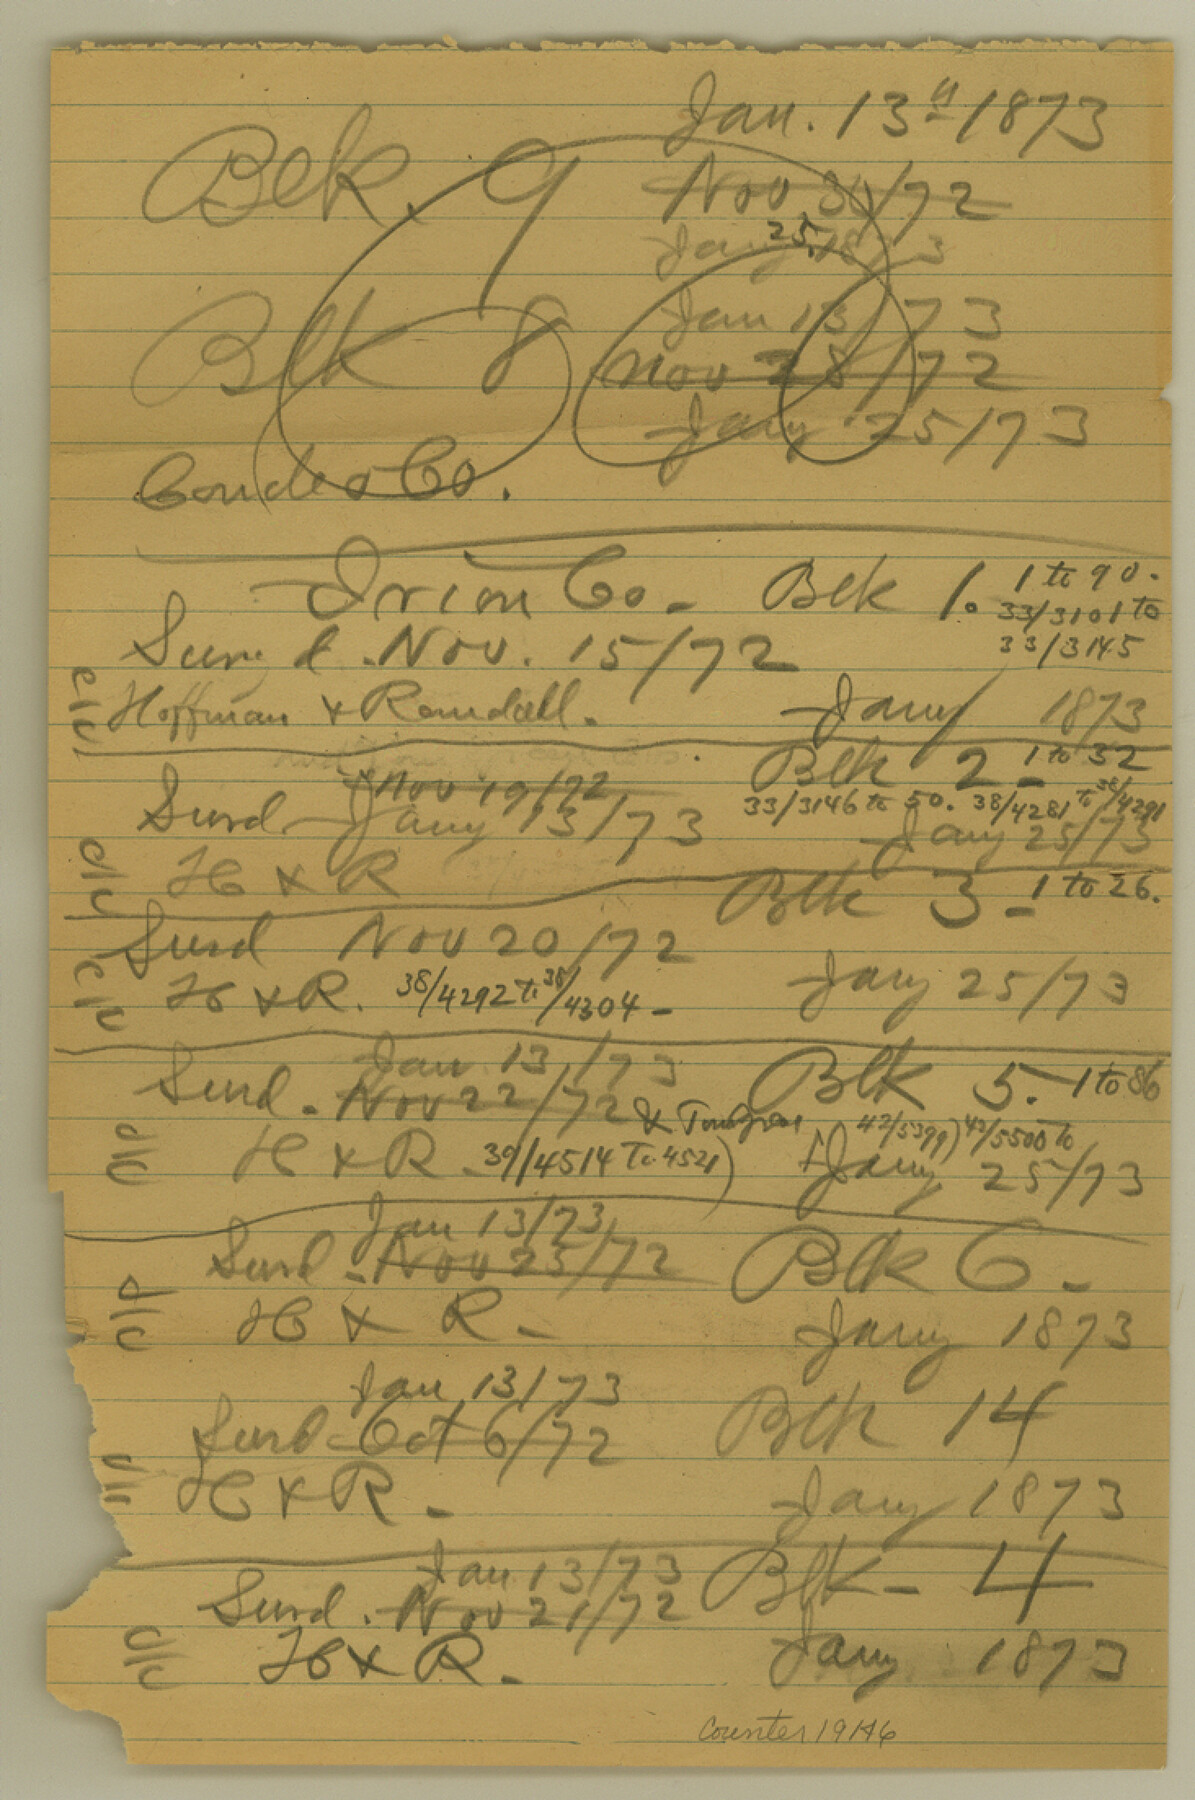 Jan. 13th 1873
Blk. 9 Nov 30/72
Jany 25, 1873
Jan 13/73
Blk 8 Nov 28/72
Jany 25/73
Concho Co.
Irion Co. Blk 1. 1 to 90.
33/3101 to
33/3145
Surd. Nov. 15/72
Hoffman & Randall. Jany 1873
Blk 2 - 1 to 32
Nov 19/72
33/3146 to 50. 38/4281 to 38/4291
Surd Jany 13/73 Jany 25/73
H & R
Blk 3 - 1 to 26.
Surd Nov 20/72
H & R. 38/4292 to 38/4304 - Jany 25/73
Jan 13/73
Blk 5. - 1 to 86
Surd. Nov 22/72
42/5399) 42/5500 to
H & R - 39/4514 To 4521) Jany 25/73
Jan 13/73
Surd. Nov 25/72 Blk 6 -
H & R - Jany 1873
Jan 13/73
Surd Oct 6/72 Blk 14
H & R - Jany 1873
Jan 13/73
Blk - 4
Surd. Nov 21/72
H & R. Jany 1873
Counter 19146